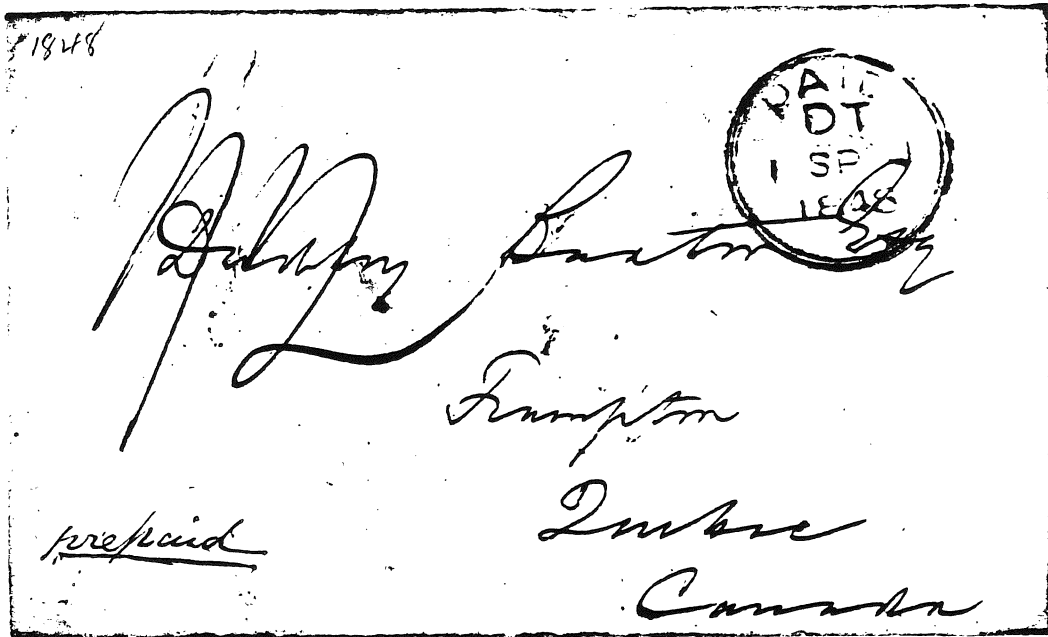 1848
PAID
DT
1 SP
1848
Baxter Esq
Frampton
Quebec
Canada
prepaid